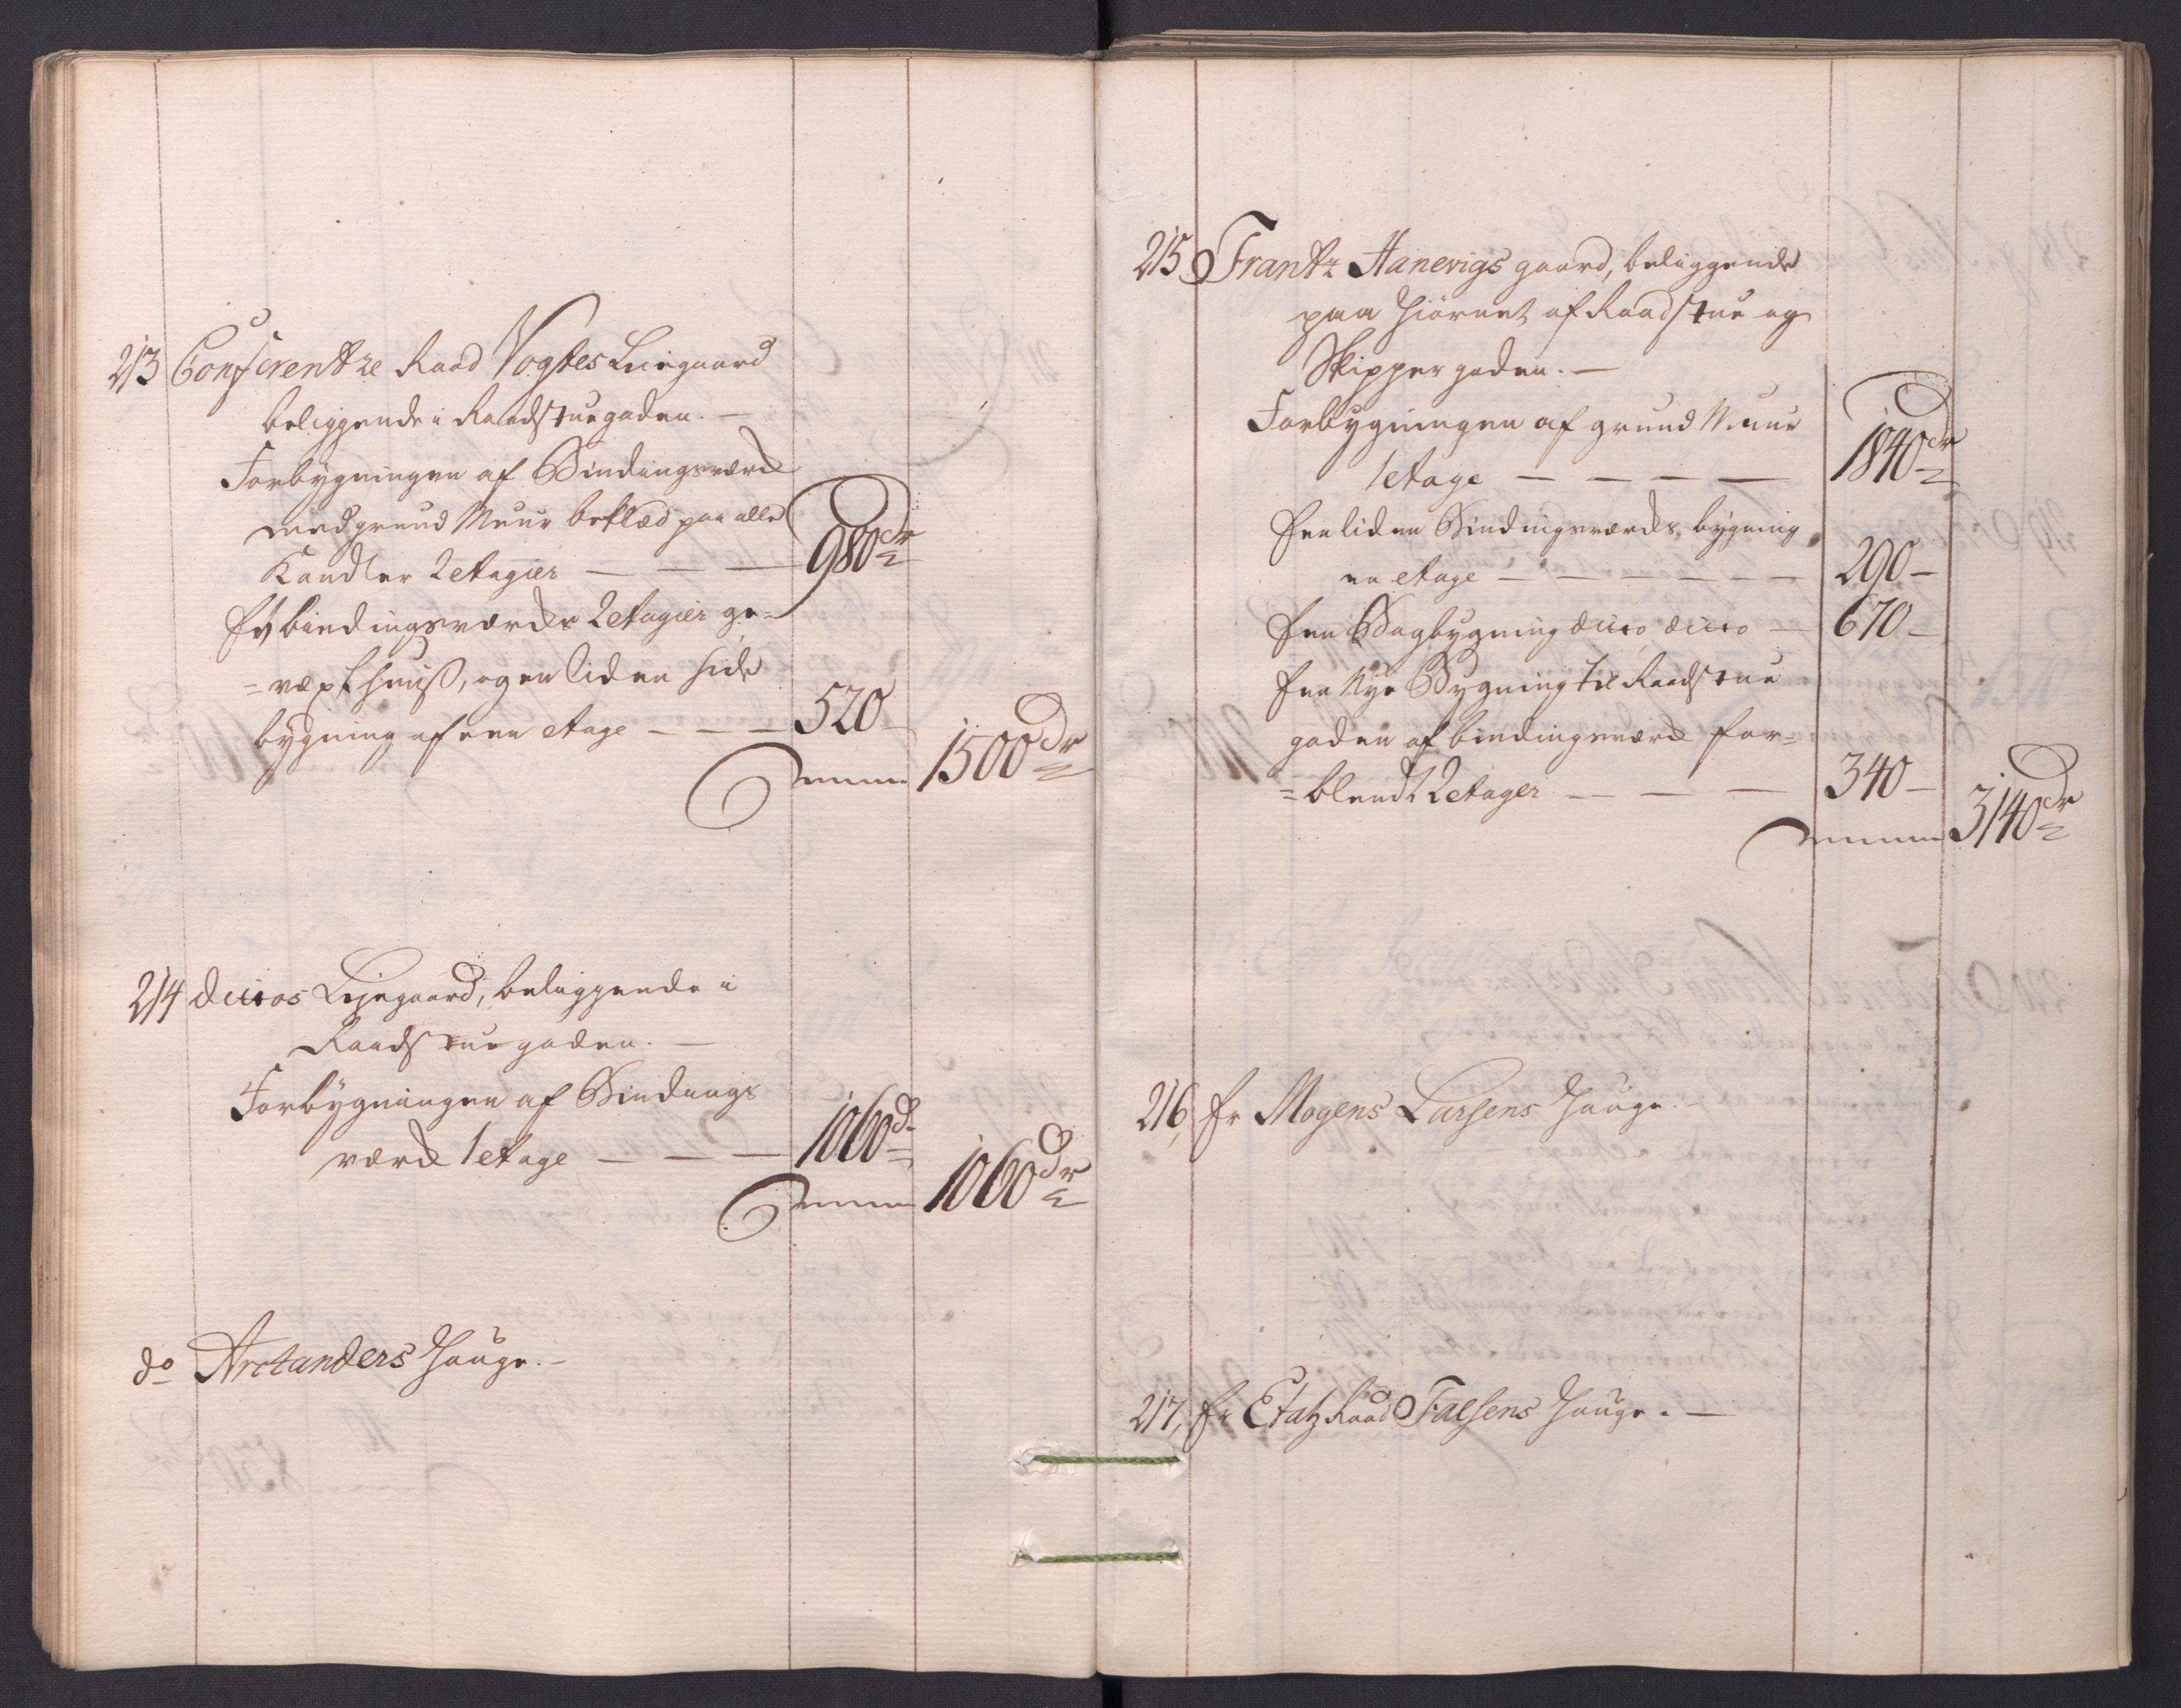 213 Conferentze Raad Vogtes Leiegaard
beliggende i Raadstuegaden. —
Forbygningen af Bindingsværck
med grund Muur beklæd paa alle
Kandter 2 etagier — — — 980 dr
Et bindingsværcks 2 etagier ge=
=væxt huuß, og en liden side
bygning af een etage — — — 520 –
Summa 1500 dr
214 dittos Lejegaard, beliggende i
Raadstuegaden. —
Forbygningen af Bindings
værck 1 etage — — — 1060 dr
Summa 1060 dr
do Arctanders Hauge. –
215 Frantz Hanevigs gaard, beliggende
paa Hiørnet af Raadstue og
Skippergaden. —
Forbygningen af grund Muur
1 etage — — — — — 1840 dr
Een liden Bindingsværcks bygning
en etage — — — — — — 290 –
Een Bagbygning ditto ditto — 670 –
Een Nye Bygning til Raadstue
gaden af bindingsværck for=
=blendt 2 etager — — — 340 –
Summa 3140 dr
216, Er Mogens Larsens Hauge. –
217, Er Etatz Raad Falsens Hauge. —